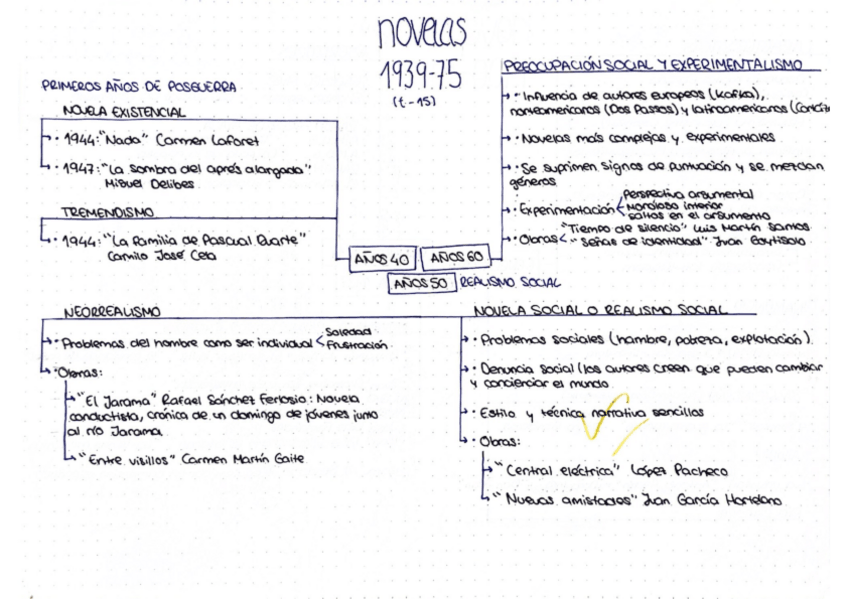 novelas
1939-75
(t-15)
PRIMEROS AÑOS DE POSGUERRA
NOVELA EXISTENCIAL
· 1944: "Nada" Carmen Laforet
· 1947: "La sombra del aprés alargada"
Miguel Delibes
TREMENDISMO
· 1944: "La familia de Pascual Duarte"
Camilo José Cela
PREOCUPACIÓN SOCIAL Y EXPERIMENTALISMO
· Influencia de autores europeos (Kafka),
norteamericanos (Dos Passos) y latinoamericanos
· Novelas más complejas y experimentales
· Se suprimen signos de puntuación y se mezclan
géneros
· Experimentación < Perspectiva argumental
Monólogo interior
saltos en el argumento
· Obras < "Tiempo de silencio" Luis Martín Santos
"Señas de identidad" Juan Goytisolo
AÑOS 40
AÑOS 60
AÑOS 50 REALISMO SOCIAL
NEORREALISMO
· Problemas del hombre como ser individual < Soledad
Frustración
· Obras:
· "El Jarama" Rafael Sánchez Ferlosio: Novela
conductista, crónica de un domingo de jóvenes junto
al río Jarama
· "Entre visillos" Carmen Martín Gaite
NOVELA SOCIAL O REALISMO SOCIAL
· Problemas sociales (hambre, pobreza, explotación).
· Denuncia social (los autores creen que pueden cambiar
y concienciar el mundo
· Estilo y técnica narrativa sencillos
· Obras:
· "Central eléctrica" López Pacheco
· "Nuevas amistades" Juan García Hortelano